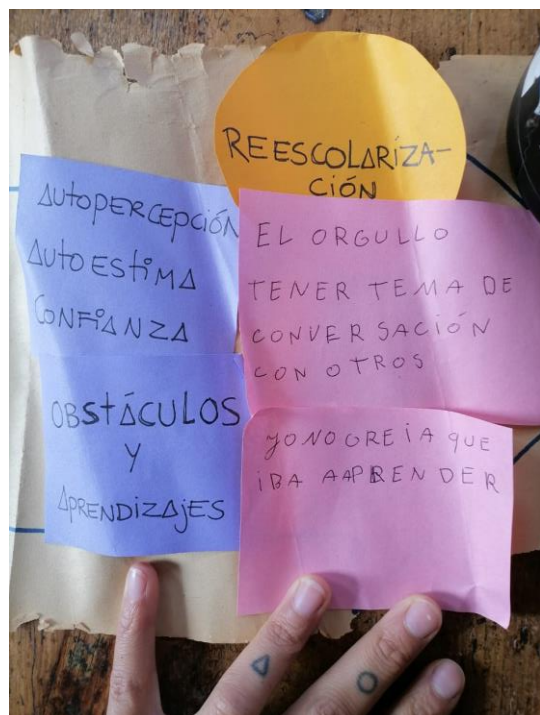 REESCOLARIZA-
CIÓN
AUTOPERCEPCIÓN
AUTOESTIMA
CONFIANZA
OBSTÁCULOS
Y
APRENDIZAJES
EL ORGULLO
TENER TEMA DE
CONVERSACIÓN
CON OTROS
YO NO CREIA QUE
IBA A APRENDER